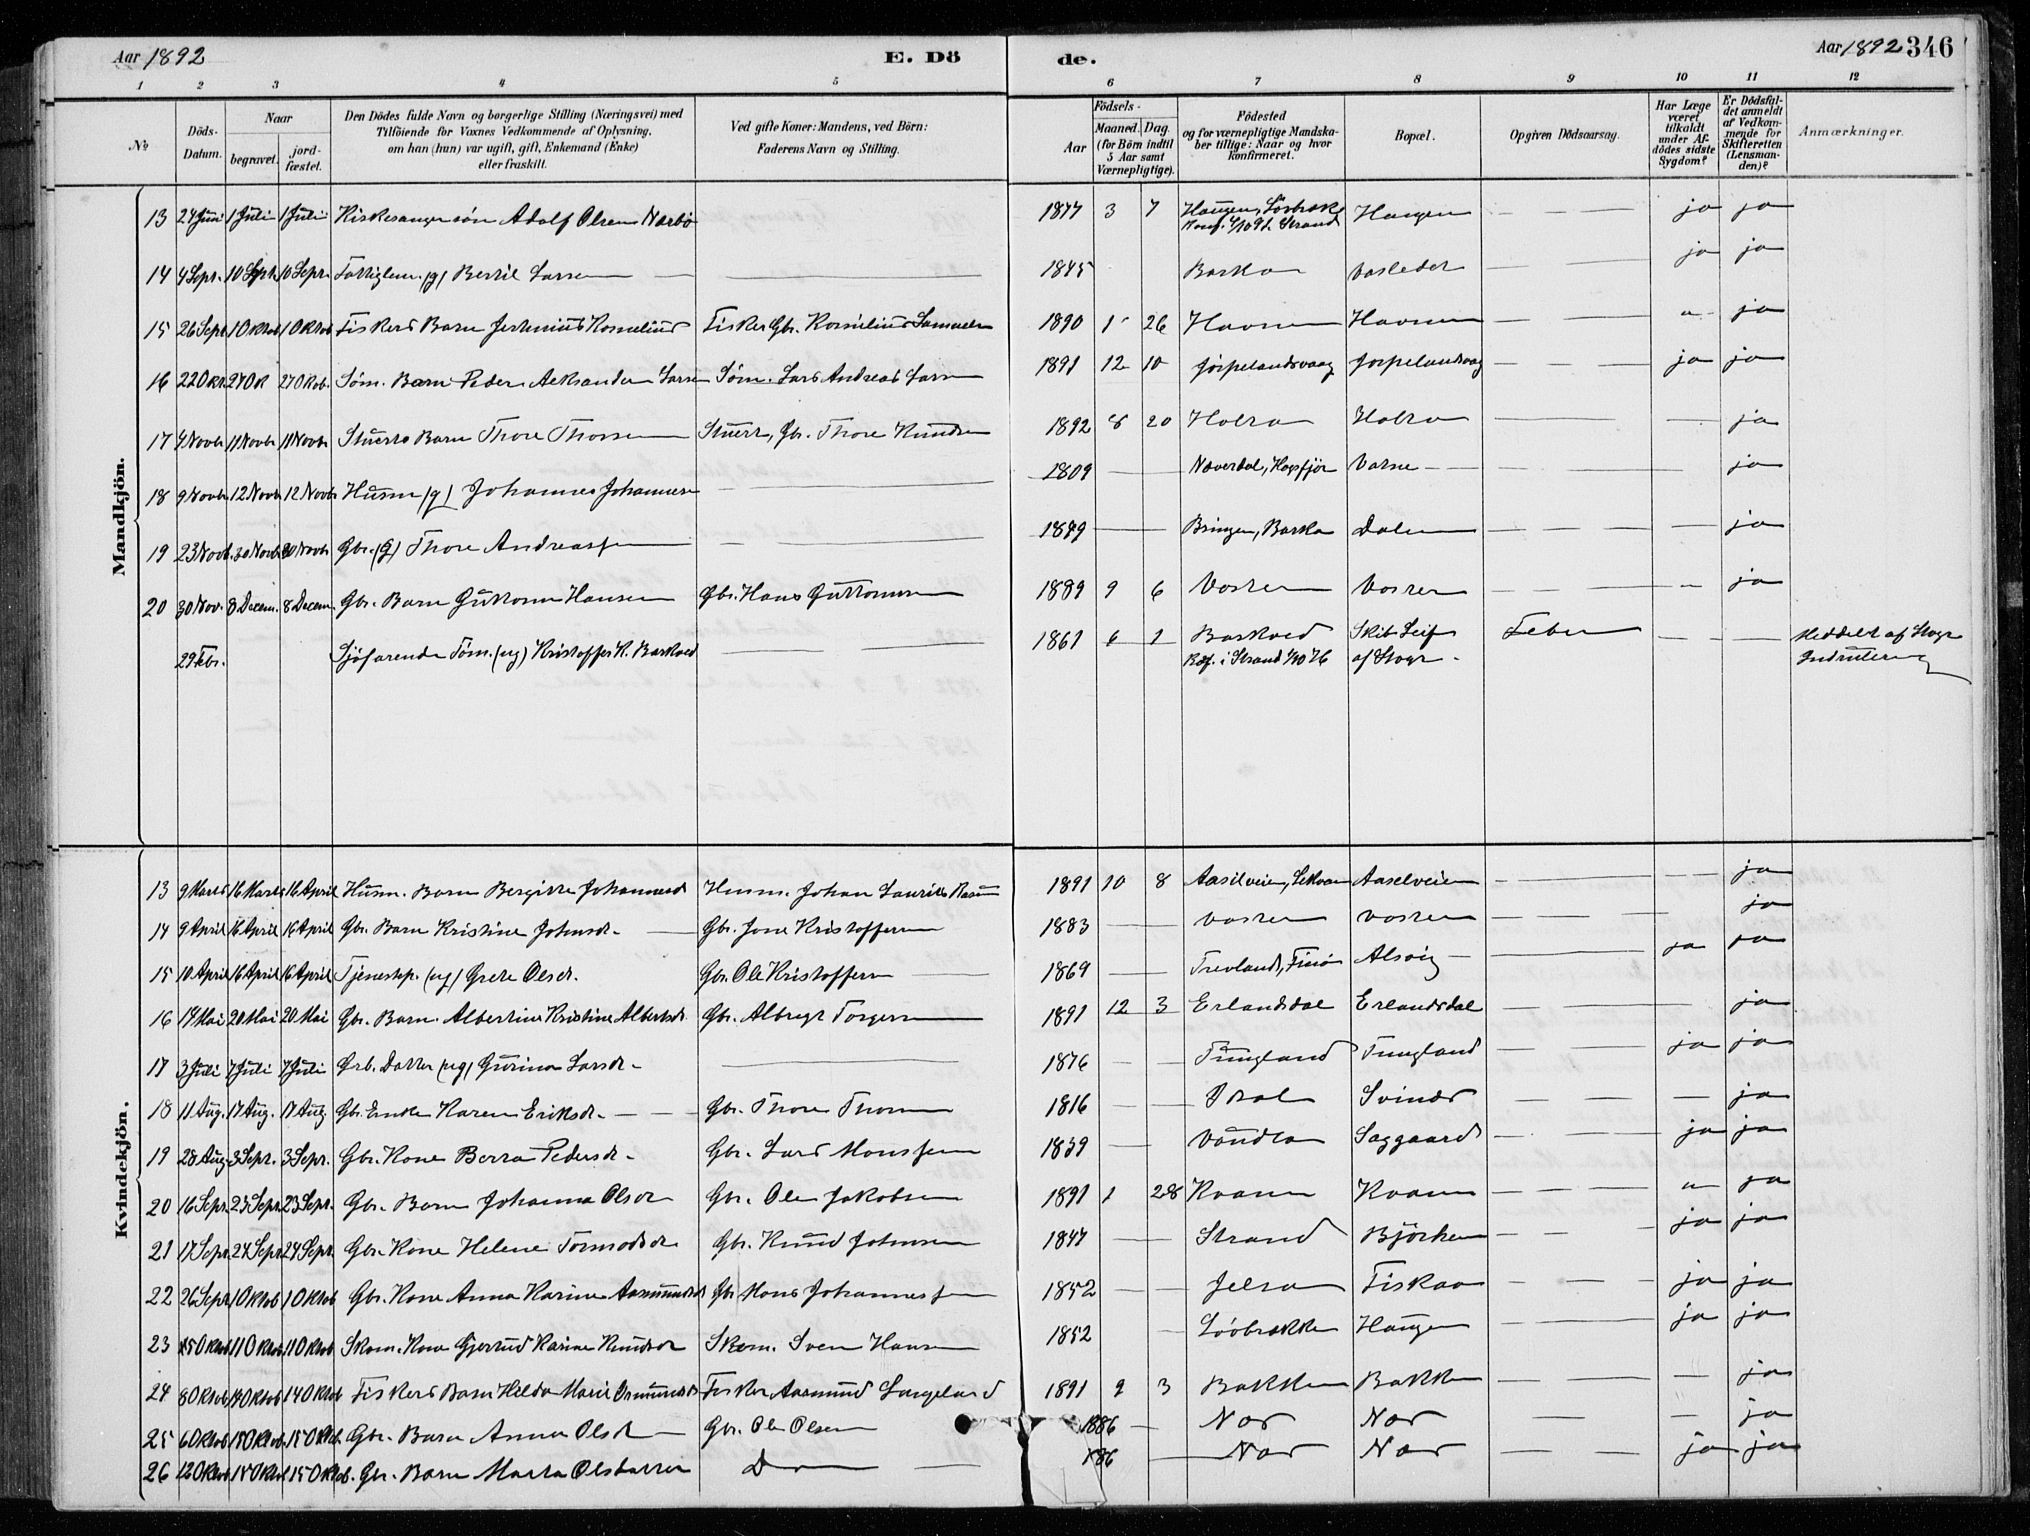 Aar 1892 E. Dö de. Aar 1892 346
1 2 3 4 5 6 7 8 9 10 11 12
№ Döds-Datum. Naar begravet. jord-fæstet. Den Dödes fulde Navn og borgerlige Stilling (Næringsvei) med Tilföiende for Voxnes Vedkommende af Oplysning, om han (hun) var ugift, gift, Enkemand (Enke) eller fraskilt. Ved gifte Koner: Mandens, ved Börn: Faderens Navn og Stilling. Födsels- Aar Maaned. Dag. (for Börn indtil 5 Aar samt Værnepligtige). Födested og for værnepligtige Mandskaber tillige: Naar og hvor konfirmeret. Bopæl. Opgiven Dödsaarsag. Har Læge været tilkaldt under Afdödes sidste Sygdom? Er Dödsfaldet anmeldt af Vedkommende for Skifteretten (Lensmanden)? Anmærkninger.
Mandkjön.
13 24 Juni 1 Juli 1 Juli Adolf Olsen Narbö 1877 3 7 Haugen, Haugen ja ja
Konf. 4/10 91. Strand
14 4 Sept. 10 Sept. 10 Sept. Fattiglem (g) Bertil Larsen 1845 Barka ja ja
15 26 Sept 1 Oktob 1 Oktob Fiskers Barn Kornelius Fisker Gbr. Kornelius Samuelsen 1890 1 26 Havnen Havnen ja
16 22 Okt. 27 Ok 27 Okob. Söm. Barn Peder Aleksander Larsen Söm. Lars Andreas Larsen 1891 12 10 Jörpelandsvaag Jörpelandsvaag ja ja
17 4 Novb 11 Novb 11 Novb Stuerts Barn Thore Thorsen Stuert, Gbr. Thore Knudsen 1892 8 20 Holta Holta ja
18 9 Novb 12 Novb 12 Novb Husm (g) Johannes Johannesen 1809 Næverdal, Högsfjor ja
19 23 Novb. 30 Novb 30 Novb Gbr. (g) Thore Andreassen Bringen, Barka Dalen ja
20 30 Nov. 8 Decem. 8 Decem. Gbr. Barn Guttorm Hansen Gbr. Hans Guttormsen 1889 9 6 Vostren Vostren ja
29 Febr. Sjöfarende Töm. (ug) Kristoffer K. Barkved 1861 6 1 Barkved Skib Leif Feber Meddelt af Stavgr
Kof. i Strand 1/10 76 af Stavgr Indrullering
Kvindekjön.
13 9 Marts 16 Marts 16 April Husm. Barn Bergitte Johannesd Husm. Johan Laurits Rasm 1891 10 8 Aaselveien ja
14 9 April 16 April 16 April Gbr. Barn Kristine Johnsdr. Gbr. Jone Kristoffersen 1883 Vostren Vostren ja
15 10 April 16 April 16 April Tjenestep. (ug) Grete Olsdr. Gbr. Ole Kristoffersen 1869 Alsvig ja ja
16 14 Mai 20 Mai 20 Mai Gbr. Barn Albertine Kristine Albertsdr. Gbr. Albregt Torgersen 1891 12 3 Erlandsdal Erlandsdal ja
17 3 Juli 7 Juli 7 Juli Gbr. Datter (ug) Gurina Larsdr. 1876 Tungland Tungland ja ja
18 11 Aug. 17 Aug. 17 Aug. Gbr. Enke Karen Eriksdr. Gbr. Thore Thorsen 1816 Idsal Svines ja
19 28 Aug. 3 Sept. 3 Sept. Gbr. Kone Berta Pedersdr. Gbr. Lars Monssen 1839 Vaudla Saggaard ja ja
20 16 Sept. 23 Sept. 23 Sept. Gbr. Barn Johanna Olsdr Gbr. Ole Jakobsen 1891 1 28 Kvamen Kvamen ja
21 17 Sept. 24 Sept 24 Sept. Gbr. Kone Helene Tormodsdr Gbr. Knud Johnsen 1847 Strand Björhei ja ja
22 26 Sept 1 Oktob 1 Oktob Gbr. Kone Anna Karine Aasmundsdr Gbr Mons Johannessen 1852 Jelsa Fiskaa ja ja
23 5 Oktob 11 Oktob 11 Oktob Skom. Kone Gjertrud Karine Knudsdr Skom. Sven Hansen 1852 Haugen ja ja
24 8 Oktob 14 Oktob 14 Oktob Fiskers Barn Hilda Marie Asmundsdr Fisker Aasmund Langeland 1891 9 3 Bakken Bakken ja
25 6 Oktob 15 Oktob 15 Oktob. Gbr. Barn Anna Olsdr Gbr. Ole Olsen 1886 Nor Nor ja
26 12 Oktob 15 Oktob 15 Oktob. Gbr. Barn Marta Olsdatter D 186 Nor Nor ja ja